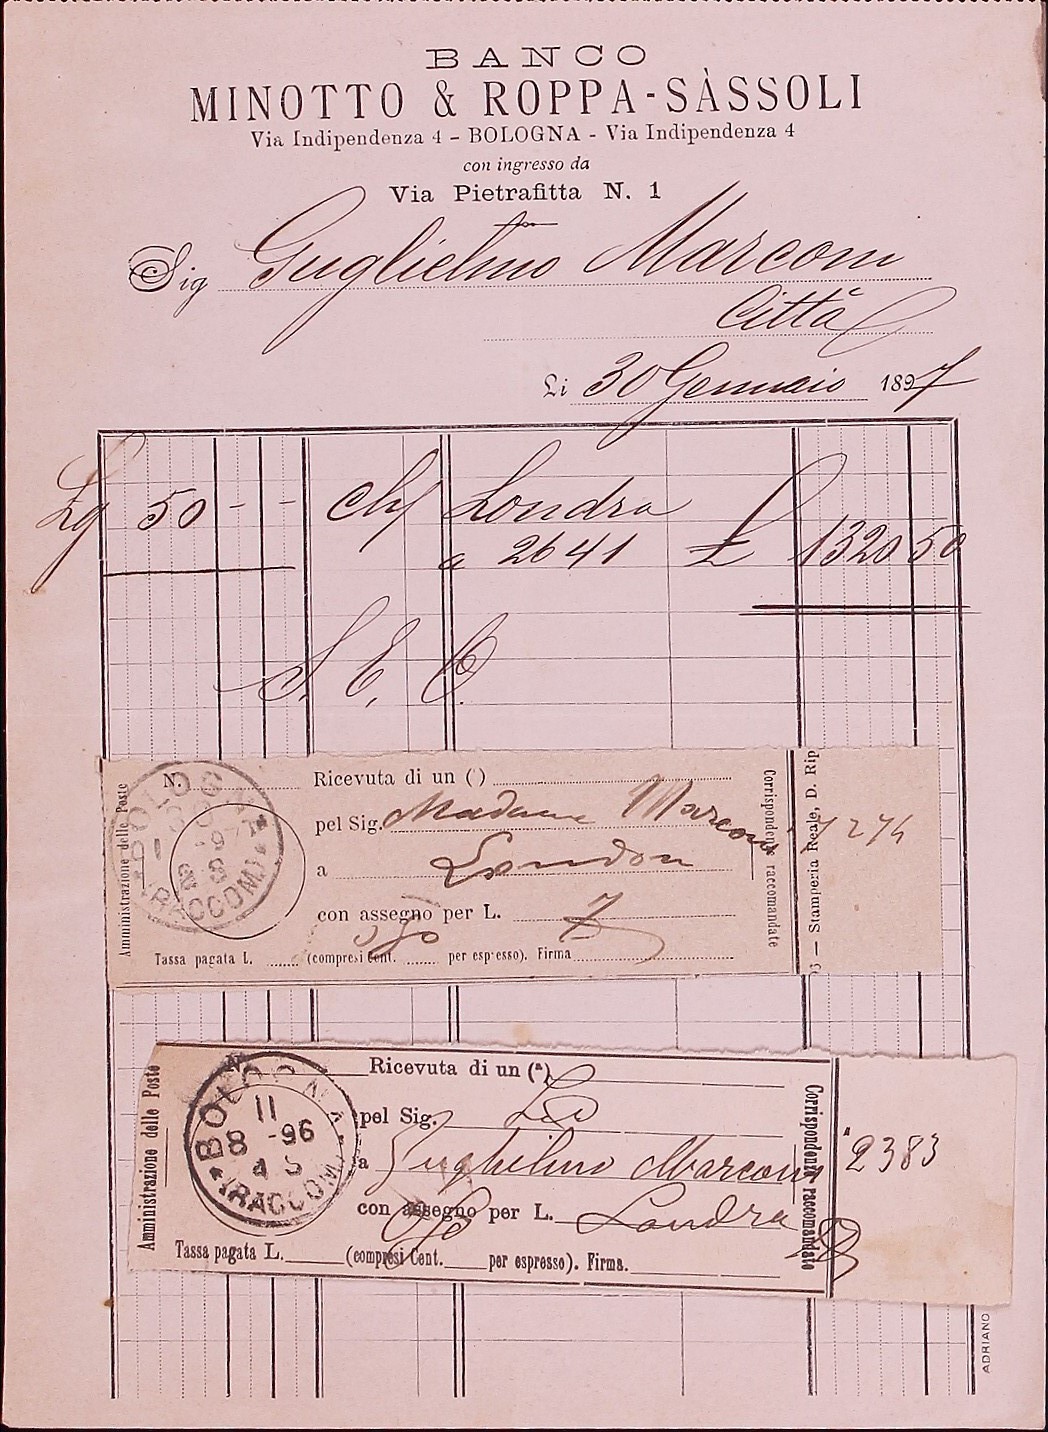 BANCO
MINOTTO & ROPPA-SÀSSOLI
Via Indipendenza 4 - BOLOGNA - Via Indipendenza 4
con ingresso da
Via Pietrafitta N. 1
Sig Guglielmo Marconi
Città
Li 30 Gennaio 1897
Lg 50 - - Londra
a 2641 £ 1320 50
S. E. O.
N. Ricevuta di un ( )
pel Sig. Madame Marconi 274
a London
con assegno per L. 7
Tassa pagata L. (compresi Cent. per espresso). Firma
Amministrazione delle Poste
Corrispondenze raccomandate
— Stamperia Reale, D. Rip
BOLOGNA
(RACCOM)
Ricevuta di un (a)
pel Sig.
a Guglielmo Marconi 2383
con assegno per L. Londra
Tassa pagata L. (compresi Cent. per espresso). Firma.
Amministrazione delle Poste
Corrispondenze raccomandate
BOLOGNA
11
8 -96
4 S
(RACCOM)
ADRIANO